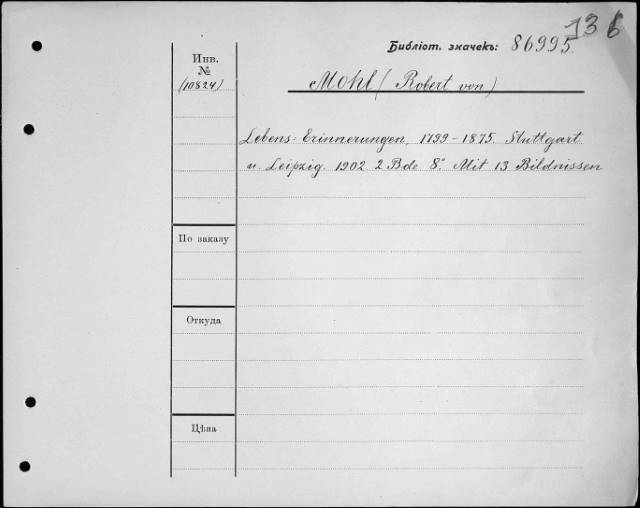 136
Библіот. значекъ: 86995.
Инв.
№
(10824)
Mohl (Robert von)
Lebens-Erinnerungen, 1799-1875. Stuttgart
u. Leipzig. 1902. 2 Bde 8°. Mit 13 Bildnissen
По заказу
Откуда
Цѣна